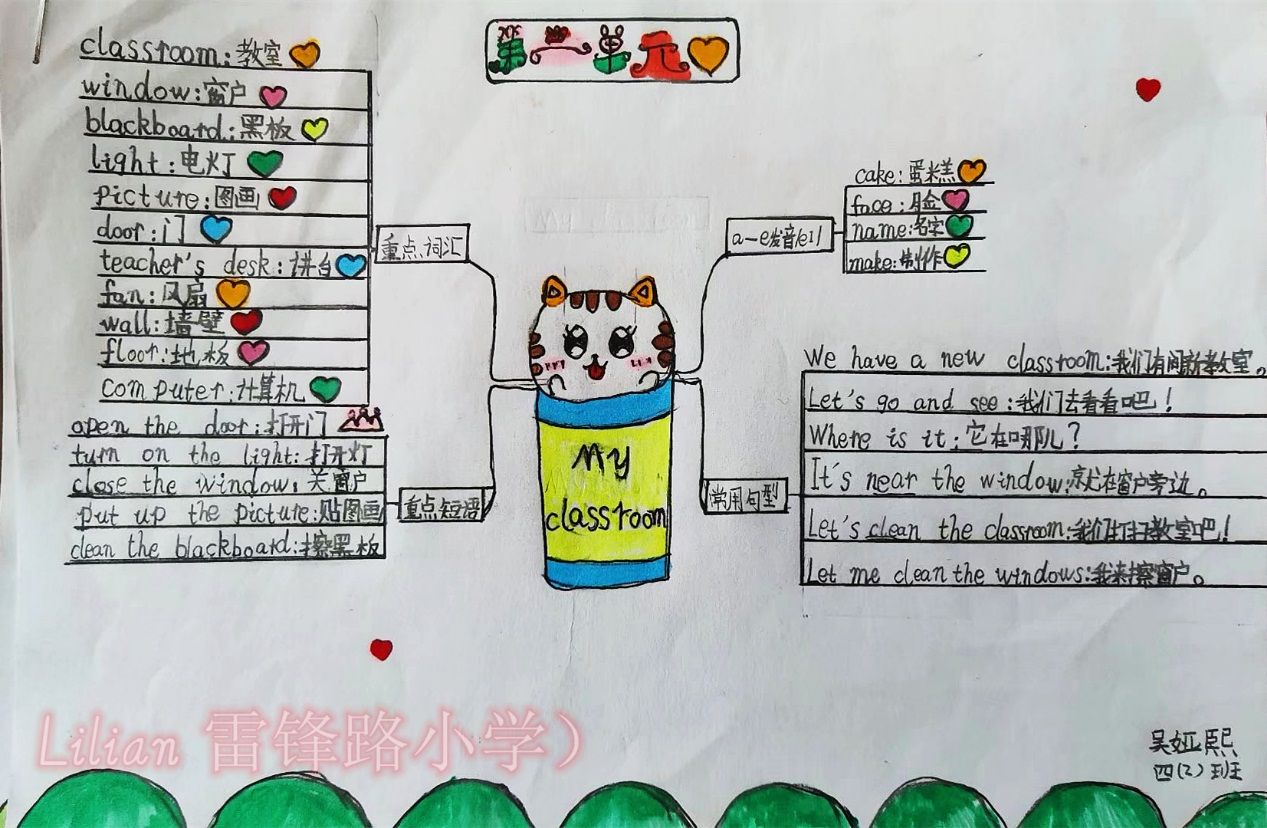 第一单元
classroom:教室
window:窗户
blackboard:黑板
light:电灯
picture:图画
door:门
teacher's desk:讲台
fan:风扇
wall:墙壁
floor:地板
computer:计算机
重点词汇
open the door:打开门
turn on the light:打开灯
close the window:关窗户
put up the picture:贴图画
clean the blackboard:擦黑板
重点短语
My
classroom
a-e发音/eɪ/
cake:蛋糕
face:脸
name:名字
make:制作
常用句型
We have a new classroom:我们有间新教室。
Let's go and see:我们去看看吧!
Where is it:它在哪儿?
It's near the window:就在窗户旁边。
Let's clean the classroom:我们打扫教室吧!
Let me clean the windows:我来擦窗户。
Lilian 雷锋路小学)
吴娅熙
四(2)班